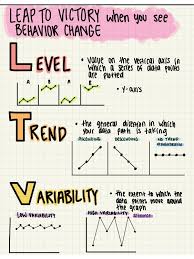 LEAP TO VICTORY when you see
BEHAVIOR CHANGE
LEVEL
• Value on the vertical axis in
which a series of data points
are plotted
A B A B
• y-axis
TREND
• the general direction in which
your data path is taking
ASCENDING DESCENDING NO TREND
VARIABILITY
• the extent to which the
data points move around
the graph
LOW VARIABILITY HIGH VARIABILITY